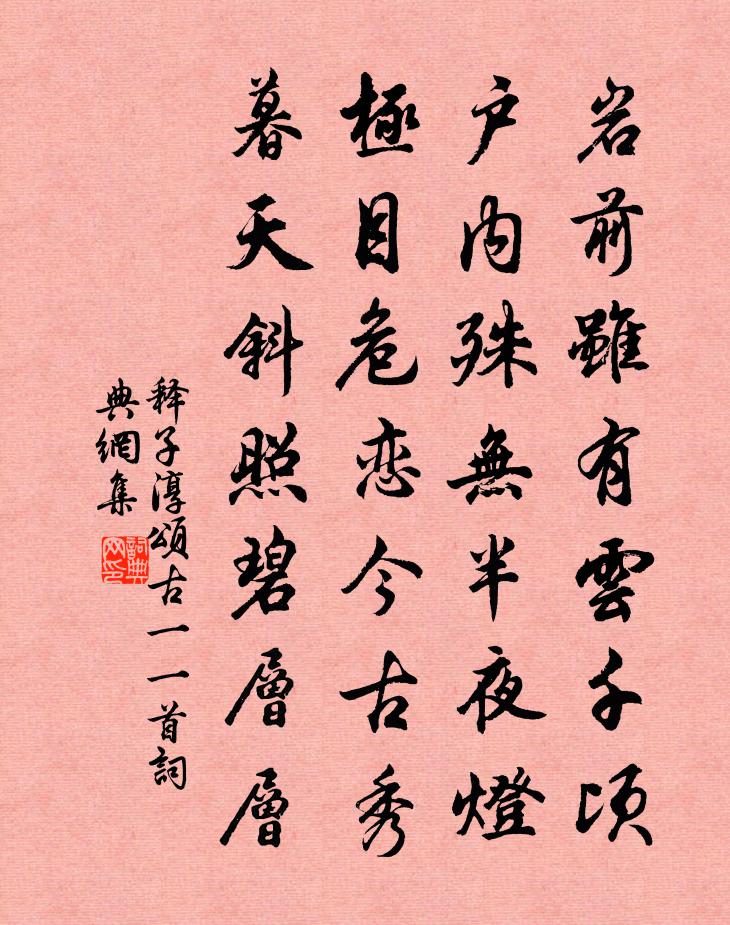 岩前雖有雲千頃
户内殊無半夜燈
極目危恋今古秀
暮天斜照碧層層
释子淳頌古一一首詞
典網集
詞典
网印